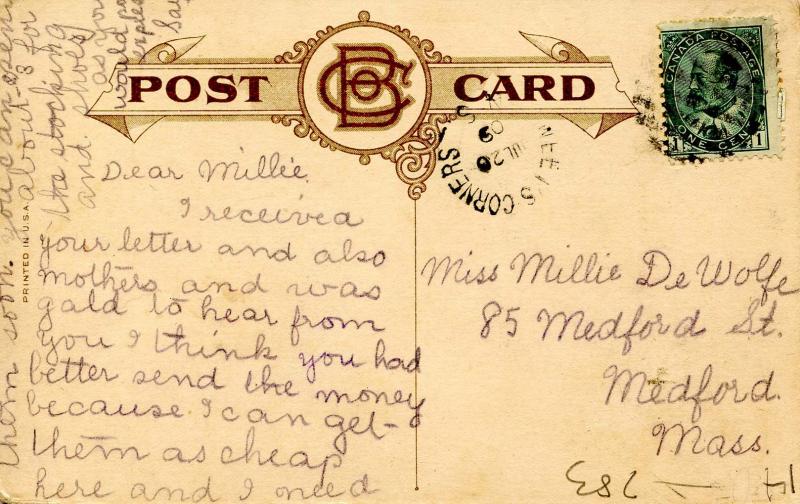 POST CARD
CANADA POSTAGE
ONE CENT
1 1
CORNERS
JUL 20
09
Dear Millie
I receivea
your letter and also
mothers and was
gald to hear from
you I think you had
better send the money
because I can get
them as cheap
here and I need
them soon. you can send
about $ for
the stocking
and shoes
as you
would
Miss Millie De Wolfe
85 Medford St.
Medford.
Mass.
PRINTED IN U.S.A.
283
14